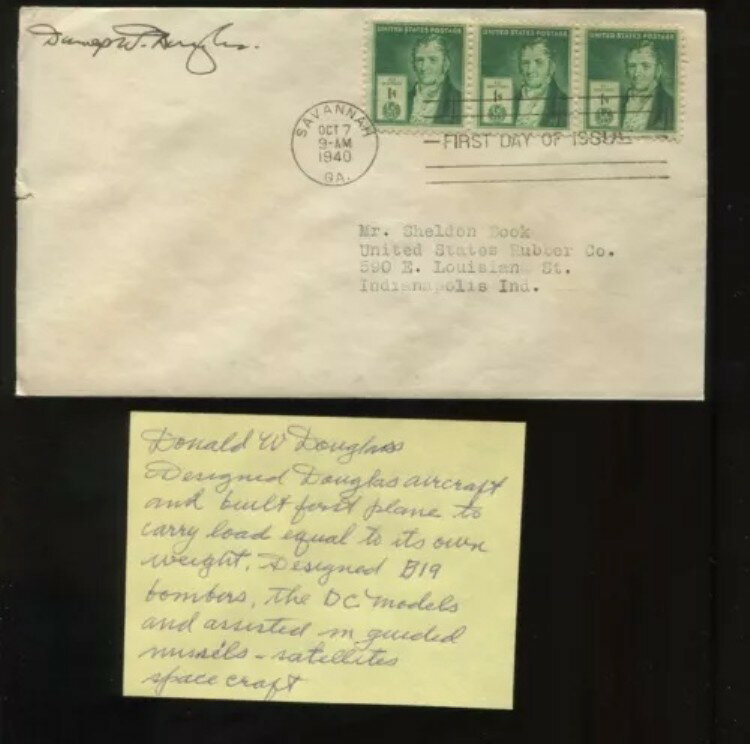 Donald W. Douglas.
UNITED STATES POSTAGE UNITED STATES POSTAGE UNITED STATES POSTAGE
1¢ 1¢ 1¢
SAVANNAH
OCT 7
9-AM
1940
GA.
FIRST DAY OF ISSUE
Mr. Sheldon Book
United States Rubber Co.
590 E. Louisian St.
Indianapolis Ind.
Donald W Douglass
Designed Douglas aircraft
and built first plane to
carry load equal to its own
weight. Designed B19
bombers, the DC models
and assisted in guided
missels - satellites
space craft